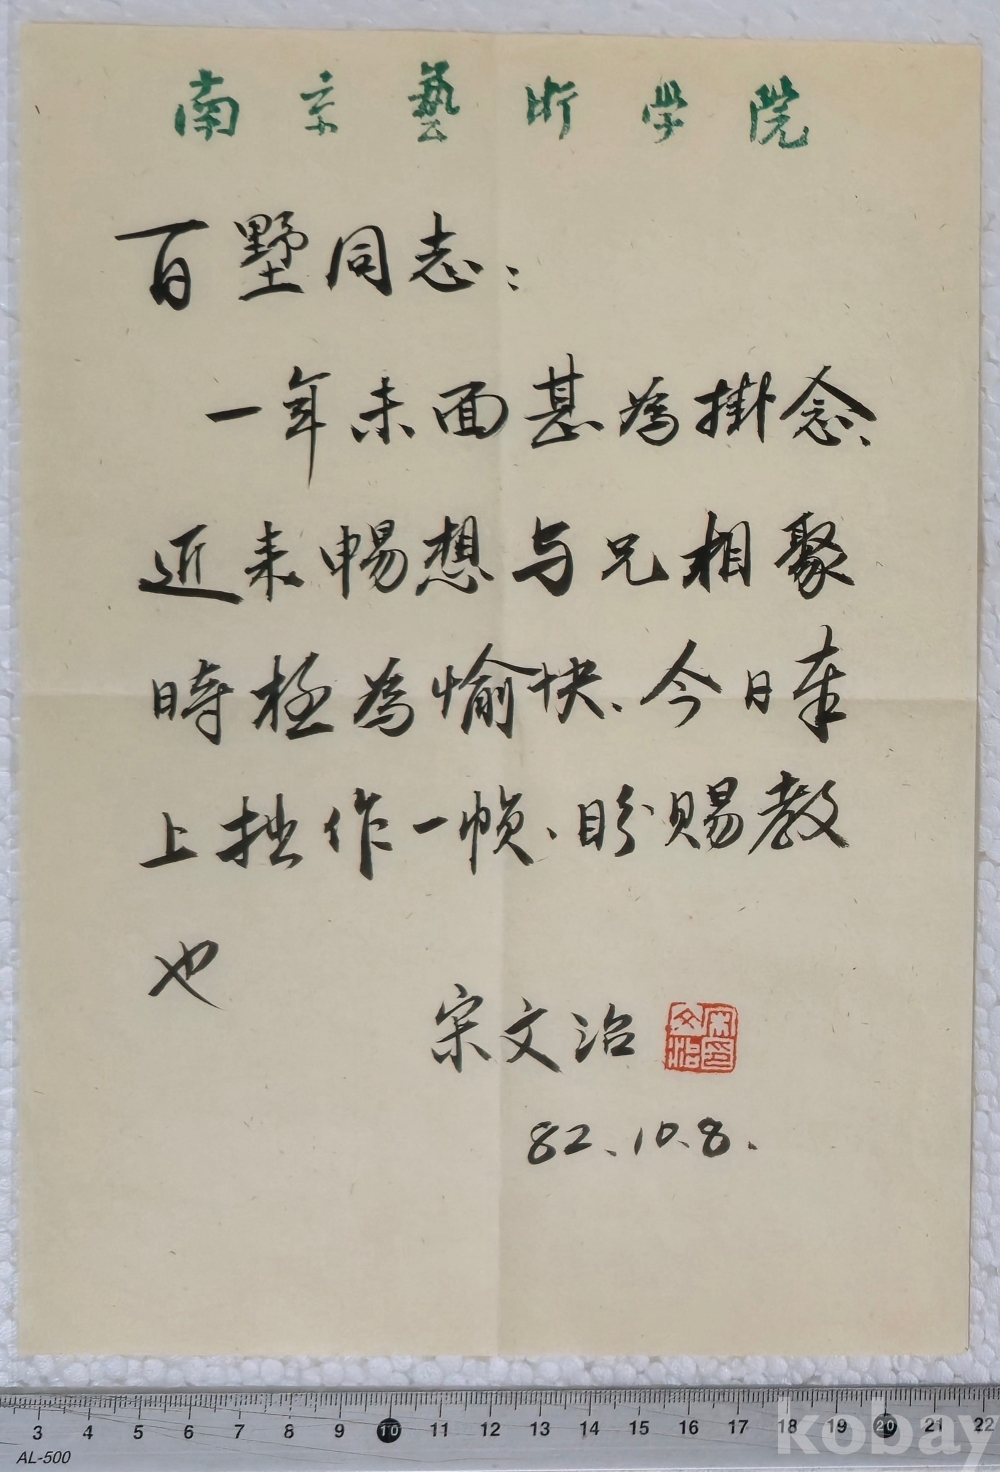 南京藝術學院
百墅同志：
一年未面甚為掛念、
近来暢想与兄相聚
時極為愉快、今日奉
上拙作一帧、盼賜教
也
宋文治
宋文治印
82.10.8.
3 4 5 6 7 8 9 10 11 12 13 14 15 16 17 18 19 20 21 22
AL-500
kobay